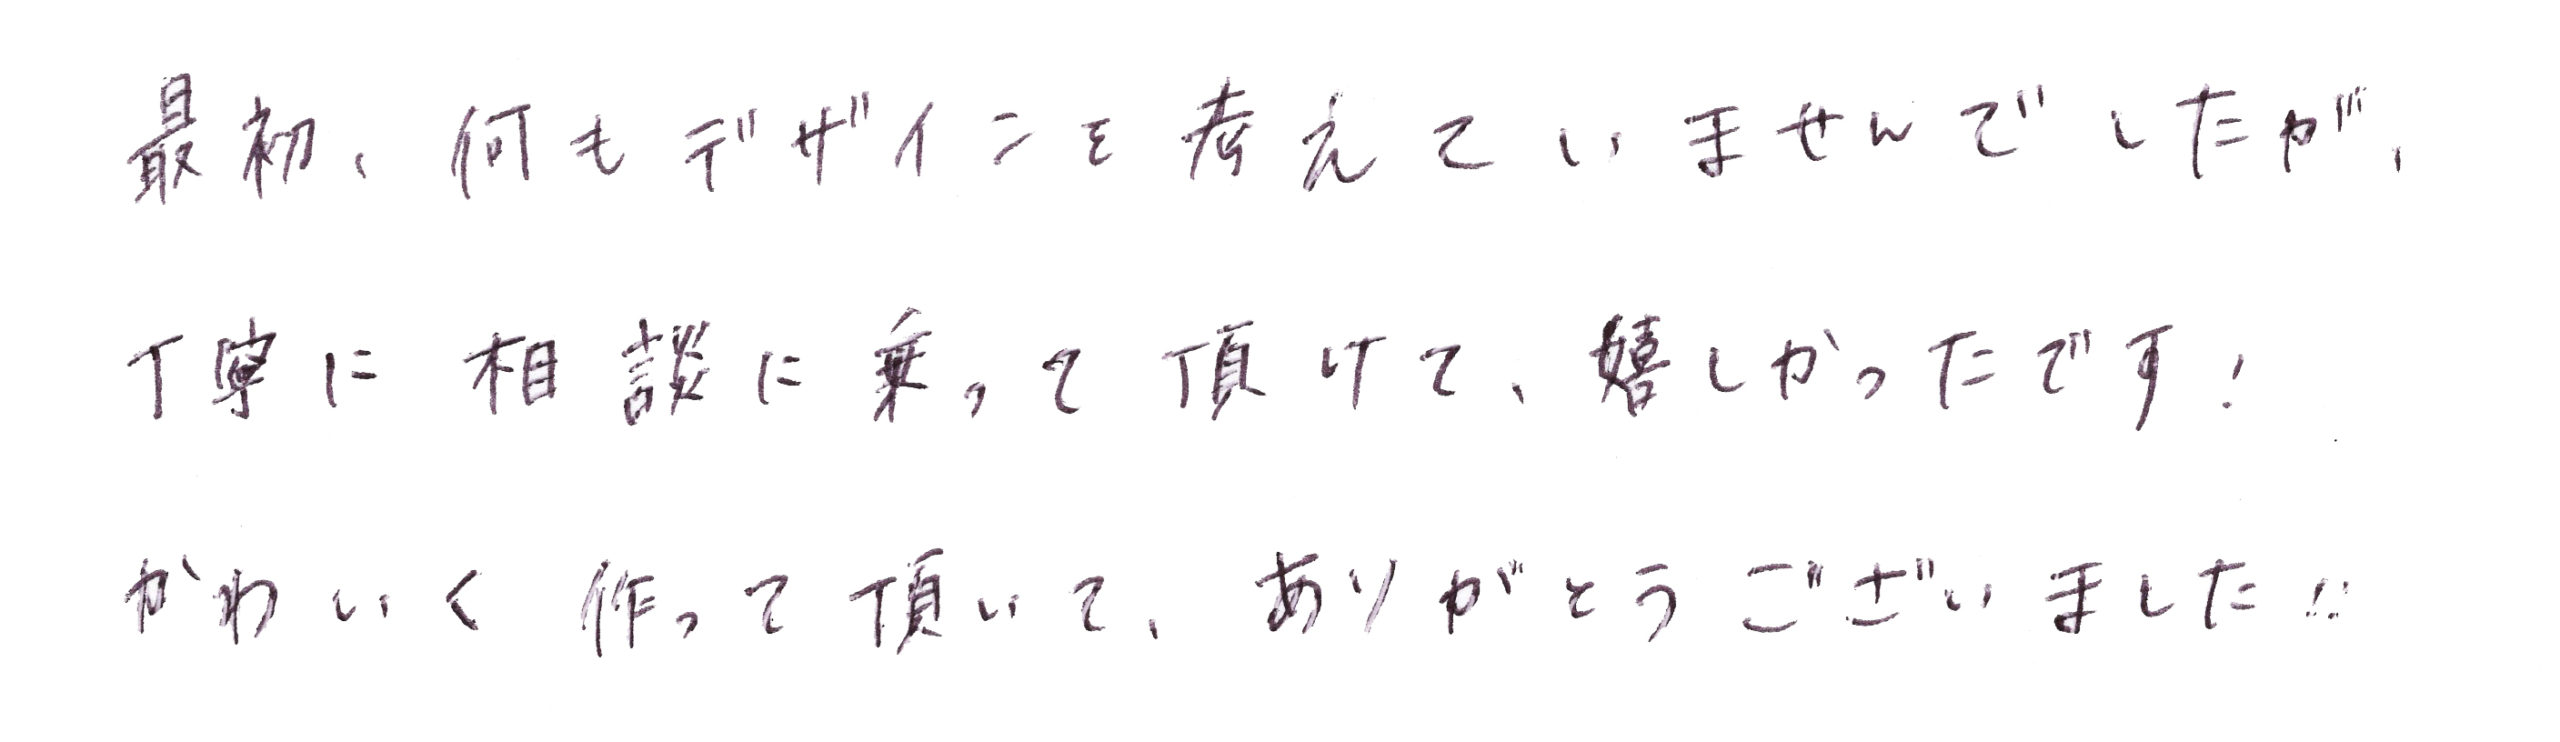 最初、何もデザインを考えていませんでしたが、
丁寧に相談に乗って頂けて、嬉しかったです!
かわいく作って頂いて、ありがとうございました!!